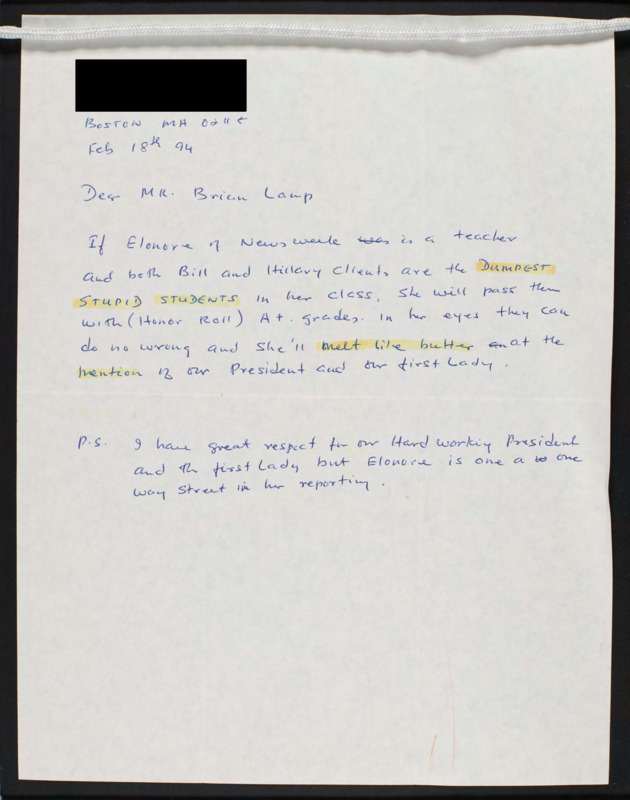 BOSTON MA
Feb 18th 94
Dear MR. Brian Lamp
If Elonore of Newsweek was is a teacher
and both Bill and Hillary Clients are the DUMPEST
STUPID STUDENTS in her class, she will pass them
with (Honor Roll) A+. grades. In her eyes they can
do no wrong and she'll melt like butter at the
mention of our President and our first Lady.
P.S. I have great respect for our Hard working President
and the first Lady but Elonore is one a one
way street in her reporting.